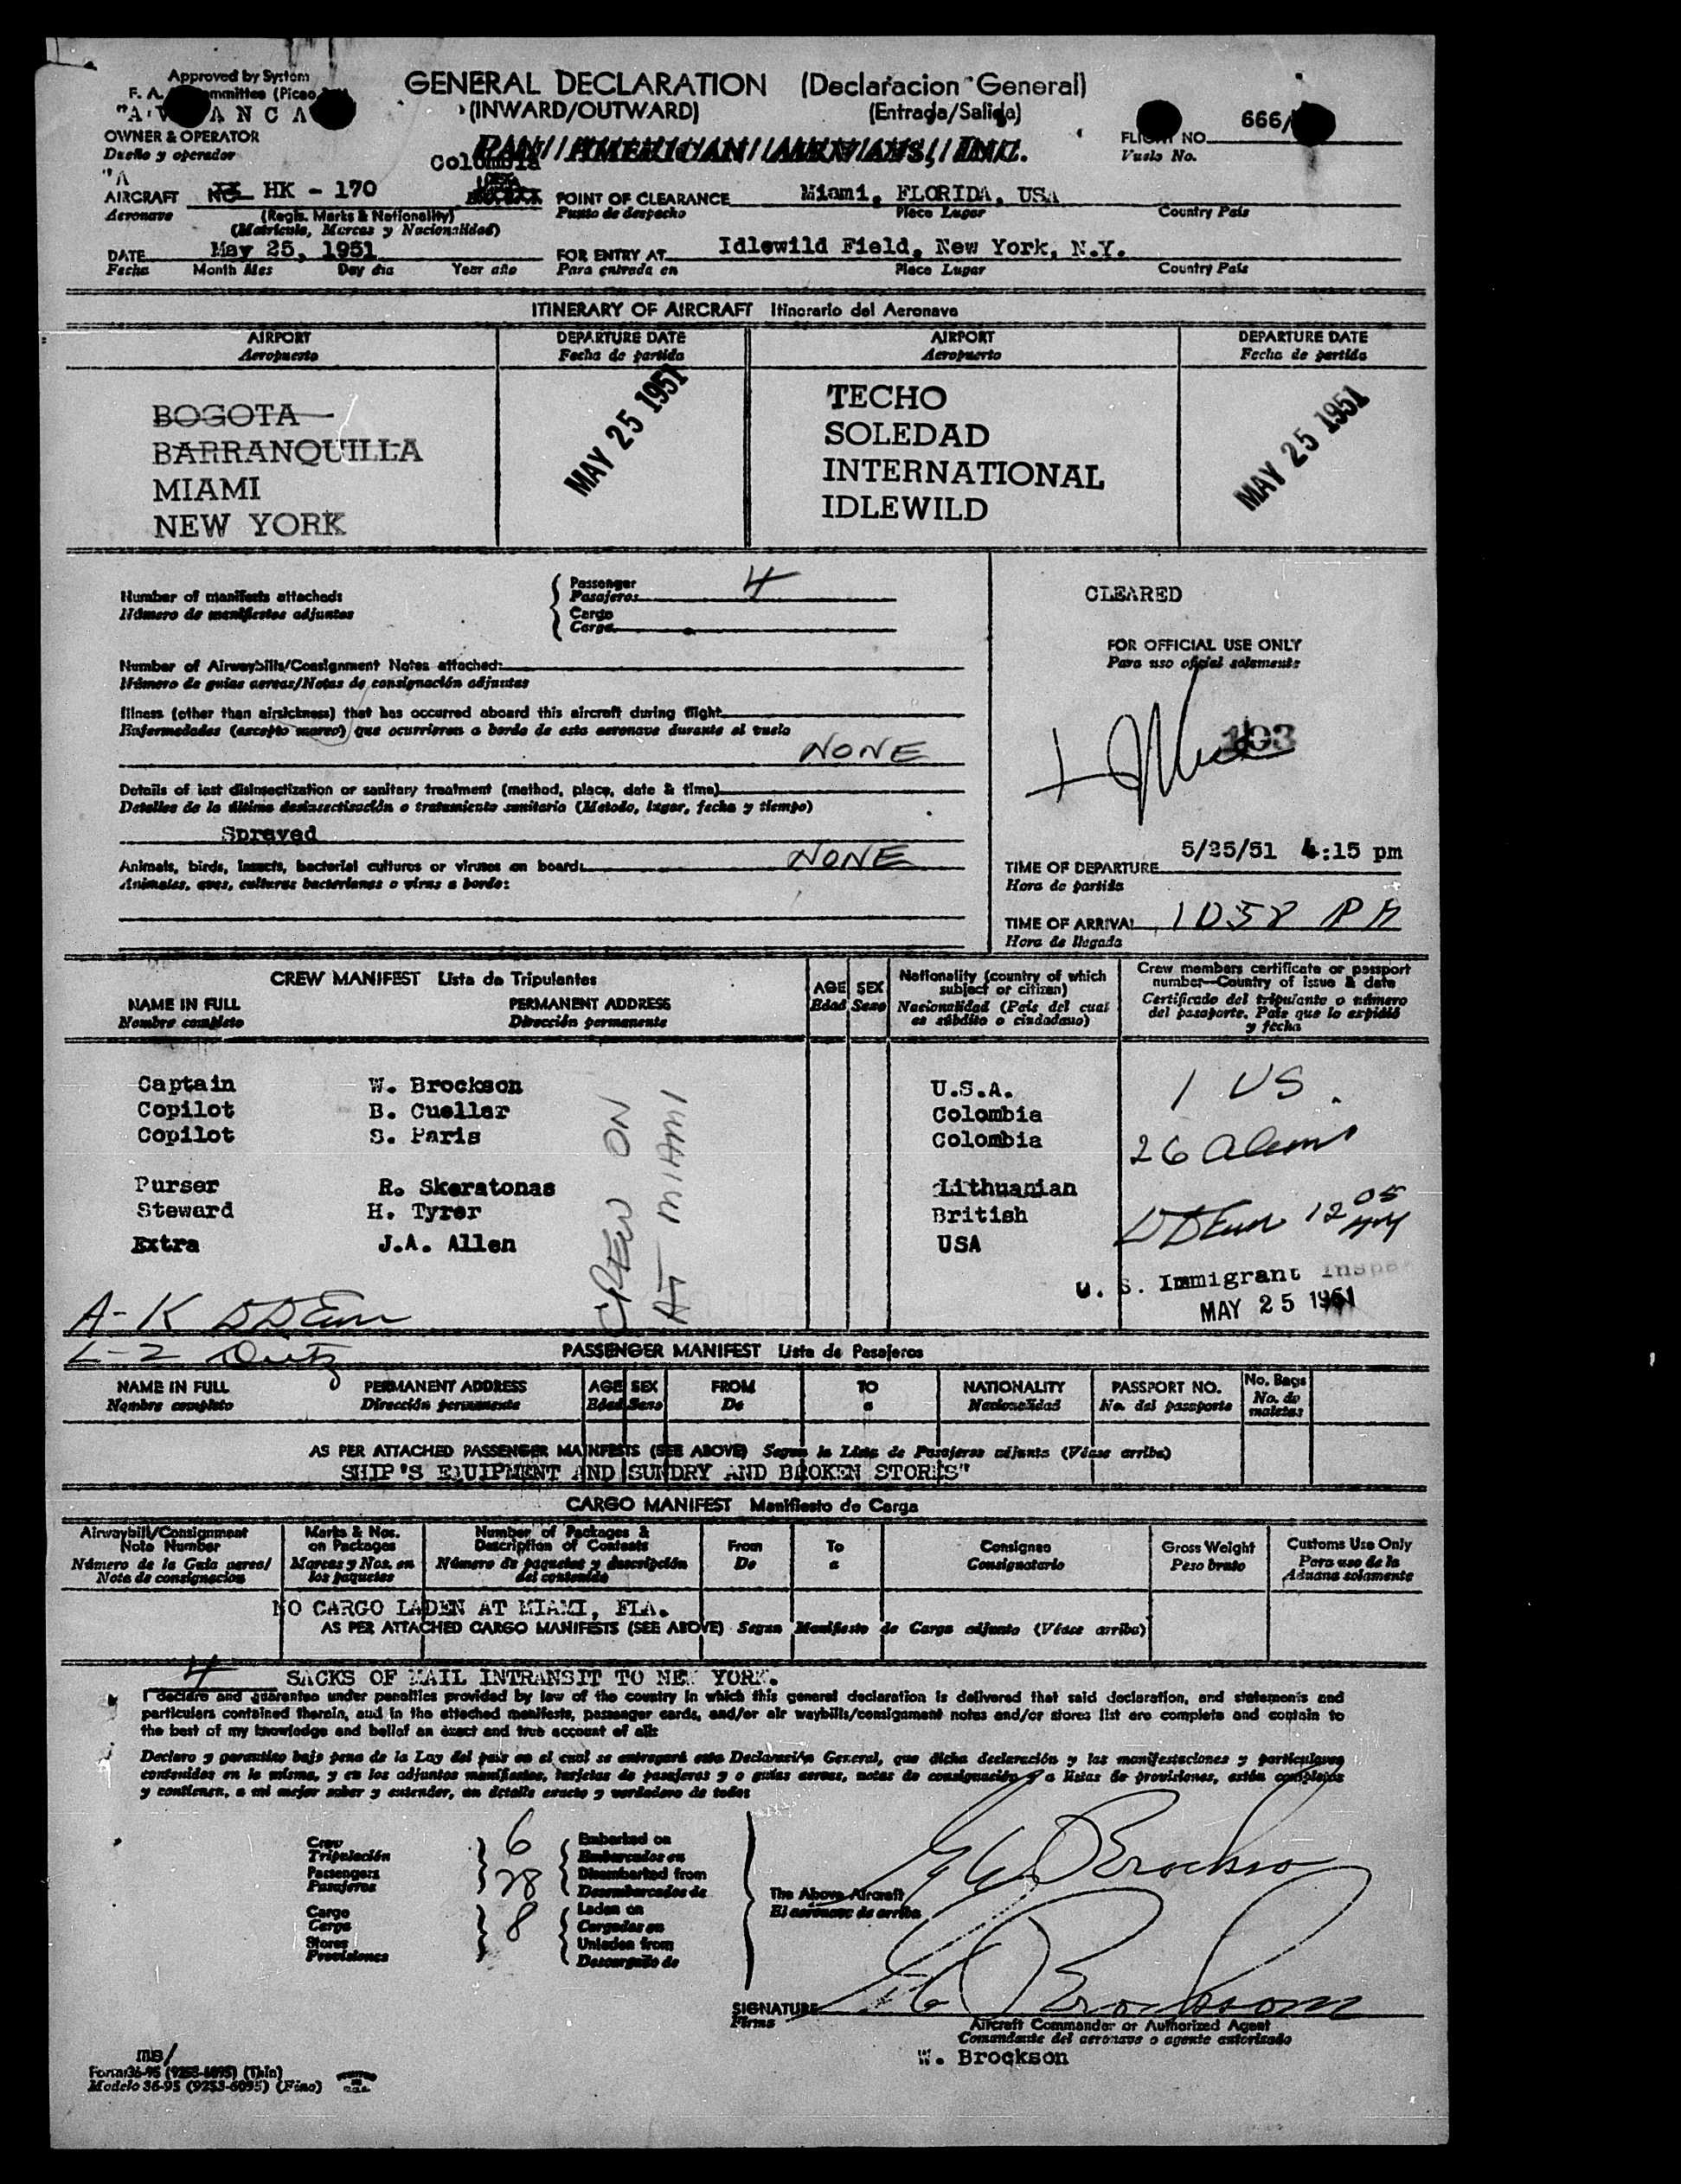 Approved by System
GENERAL DECLARATION (Declaracion General)
(INWARD/OUTWARD) (Entrada/Salida)
OWNER & OPERATOR
Dueño y operador
PAN AMERICAN AIRWAYS, INC.
FLIGHT NO. 666/
Vuelo No.
Colombia
AIRCRAFT HK - 170
Aeronave
(Regis. Marks & Nationality)
(Matricula, Marcas y Nacionalidad)
POINT OF CLEARANCE Miami, FLORIDA, USA
Punto de despacho Place Lugar Country País
DATE May 25, 1951
Fecha Month Mes Day dia Year año
FOR ENTRY AT Idlewild Field, New York, N.Y.
Para entrada en Place Lugar Country País
ITINERARY OF AIRCRAFT Itinerario del Aeronave
AIRPORT DEPARTURE DATE AIRPORT DEPARTURE DATE
Aeropuerto Fecha de partida Aeropuerto Fecha de partida
BOGOTA TECHO
BARRANQUILLA SOLEDAD
MIAMI INTERNATIONAL
NEW YORK IDLEWILD
MAY 25 1951 MAY 25 1951
Number of manifests attached:
Número de manifiestos adjuntos
Passenger
Pasajeros 4
Cargo
Carga
Number of Airwaybills/Consignment Notes attached:
Número de guias aereas/Notas de consignación adjuntas
Illness (other than airsickness) that has occurred aboard this aircraft during flight
Enfermedades (excepto mareo) que ocurrieron a bordo de esta aeronave durante el vuelo
NONE
Details of last disinsectization or sanitary treatment (method, place, date & time)
Detalles de la última desinsectización o tratamiento sanitario (Metodo, lugar, fecha y tiempo)
Sprayed
Animals, birds, insects, bacterial cultures or viruses on board: NONE
Animales, aves, culturas bacterianas o virus a bordo:
CLEARED
FOR OFFICIAL USE ONLY
Para uso oficial solamente
TIME OF DEPARTURE 5/25/51 4:15 pm
Hora de partida
TIME OF ARRIVAL 1058 PM
Hora de llegada
CREW MANIFEST Lista de Tripulantes
NAME IN FULL PERMANENT ADDRESS
Nombre completo Dirección permanente
AGE SEX
Edad Sexo
Nationality (country of which
subject or citizen)
Nacionalidad (País del cual
es súbdito o ciudadano)
Crew members certificate or passport
number—Country of issue & date
Certificado del tripulante o número
del pasaporte, País que lo expidió
y fecha
Captain W. Brockson U.S.A.
Copilot B. Cuellar Colombia
Copilot S. Paris Colombia
Purser R. Skeratonas Lithuanian
Steward H. Tyrer British
Extra J.A. Allen USA
CREW ON
AT MIAMI
1 US.
26 aliens
U. S. Immigrant
MAY 25 1951
PASSENGER MANIFEST Lista de Pasajeros
NAME IN FULL PERMANENT ADDRESS AGE SEX FROM TO NATIONALITY PASSPORT NO. No. Bags
Nombre completo Dirección permanente Edad Sexo De a Nacionalidad No. del pasaporte No. de maletas
AS PER ATTACHED PASSENGER MAINFESTS (SEE ABOVE) Segun la Lista de Pasajeros adjunta (Véase arriba)
SHIP'S EQUIPMENT AND SUNDRY AND BROKEN STORES"
CARGO MANIFEST Manifiesto de Carga
Airwaybill/Consignment
Note Number
Número de la Guía aerea/
Nota de consignacion
Marks & Nos.
on Packages
Marcas y Nos. en
los paquetes
Number of Packages &
Description of Contents
Número de paquetes y descripción
del contenido
From
De
To
a
Consignee
Consignatario
Gross Weight
Peso bruto
Customs Use Only
Para uso de la
Aduana solamente
NO CARGO LADEN AT MIAMI, FLA.
AS PER ATTACHED CARGO MANIFESTS (SEE ABOVE) Segun Manifiesto de Carga adjunto (Véase arriba)
4 SACKS OF MAIL INTRANSIT TO NEW YORK.
I declare and guarantee under penalties provided by law of the country in which this general declaration is delivered that said declaration, and statements and
particulars contained therein, and in the attached manifests, passenger cards, and/or air waybills/consignment notes and/or stores list are complete and contain to
the best of my knowledge and belief an exact and true account of all:
Declaro y garantizo bajo pena de la Ley del país en el cual se entregará esta Declaración General, que dicha declaración y las manifestaciones y particulares
contenidas en la misma, y en los adjuntos manifiestos, tarjetas de pasajeros y o guías aereas, notas de consignación y a listas de provisiones, están completos
y contienen, a mi mejor saber y entender, un detalle exacto y verdadero de todos
Crew
Tripulación 6
Passengers
Pasajeros 28
Cargo
Carga 8
Stores
Provisiones
Embarked on
Embarcados en
Disembarked from
Desembarcados de
Laden on
Cargados en
Unladen from
Descargado de
The Above Aircraft
El aeronave de arriba
SIGNATURE
Firma
Aircraft Commander or Authorized Agent
Comandante del aeronave o agente autorizado
W. Brockson
ms/
Form 36-95 (9253-6095) (Thin)
Modelo 36-95 (9253-6095) (Fino)